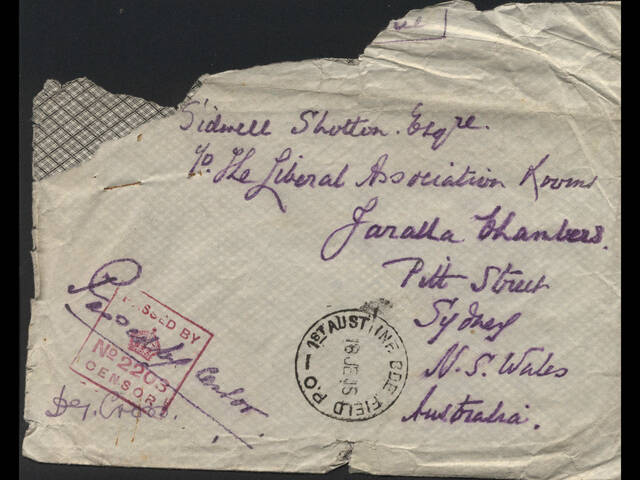 Sidwell Shotton. Esqre.
c/o. The Liberal Association Rooms
Taralla Chambers.
Pitt Street
Sydney
N. S. Wales
Australia.
Passed by Censor
PASSED BY
No 2203
CENSOR
1ST AUST INF BDE FIELD P.O